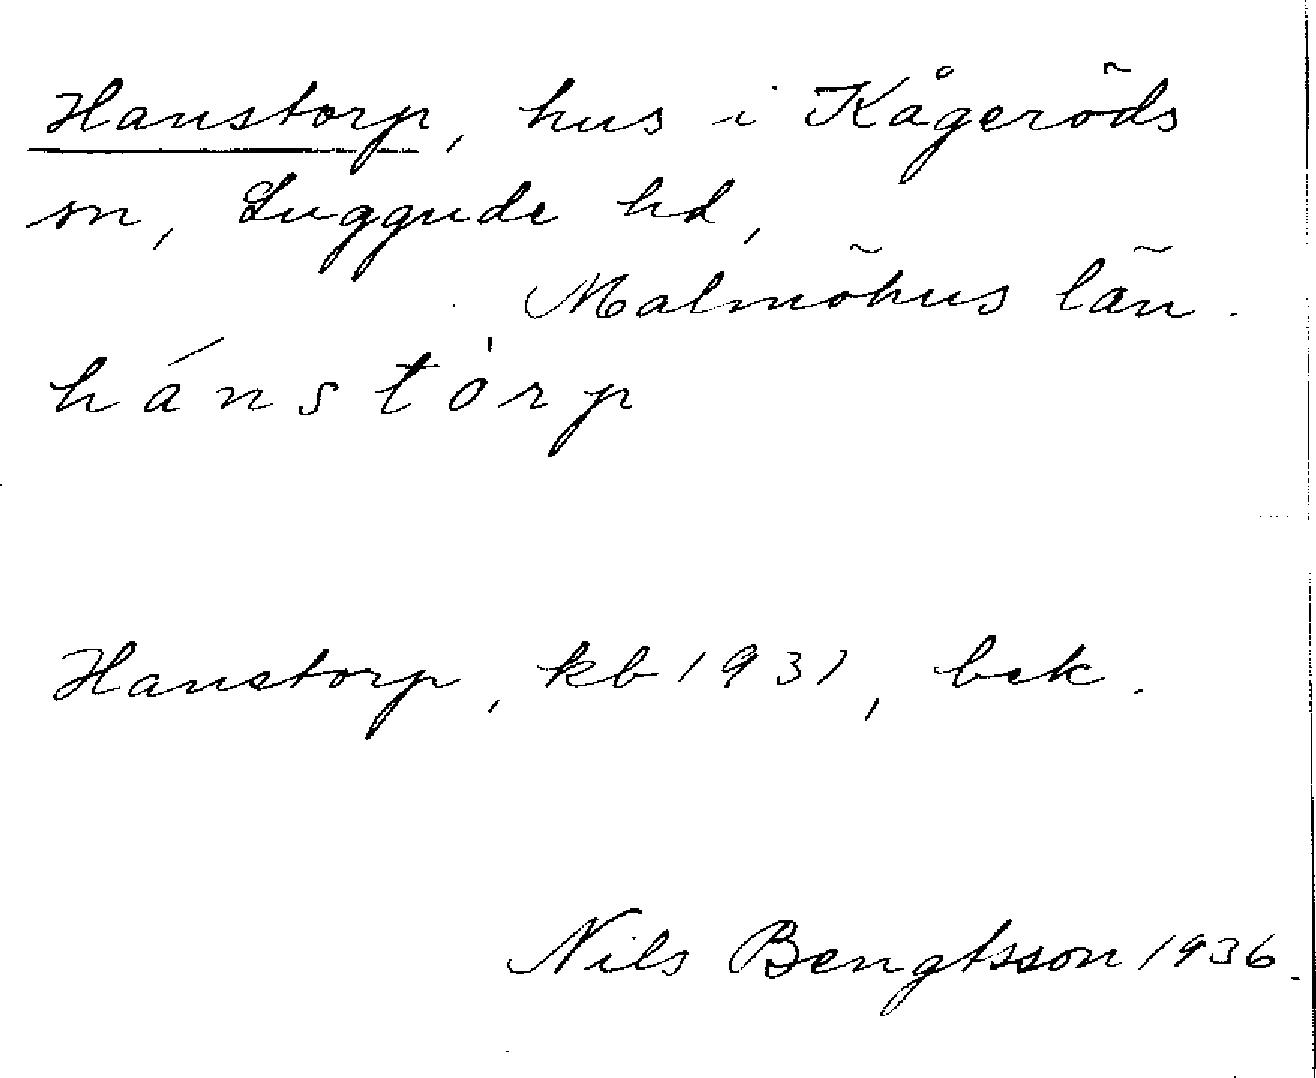 Hanstorp, hus i Kågeröds
sn, Luggude hd,
Malmöhus län.
hánstȯrp
Hanstorp, kb 1931, bek.
Nils Bengtsson 1936.